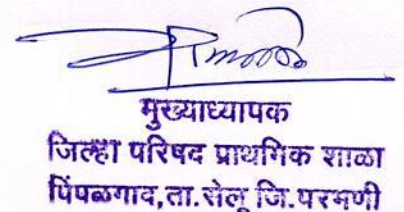 मुख्याध्यापक
जिल्हा परिषद प्राथमिक शाळा
पिंपळगाव,ता.सेलू जि.परभणी